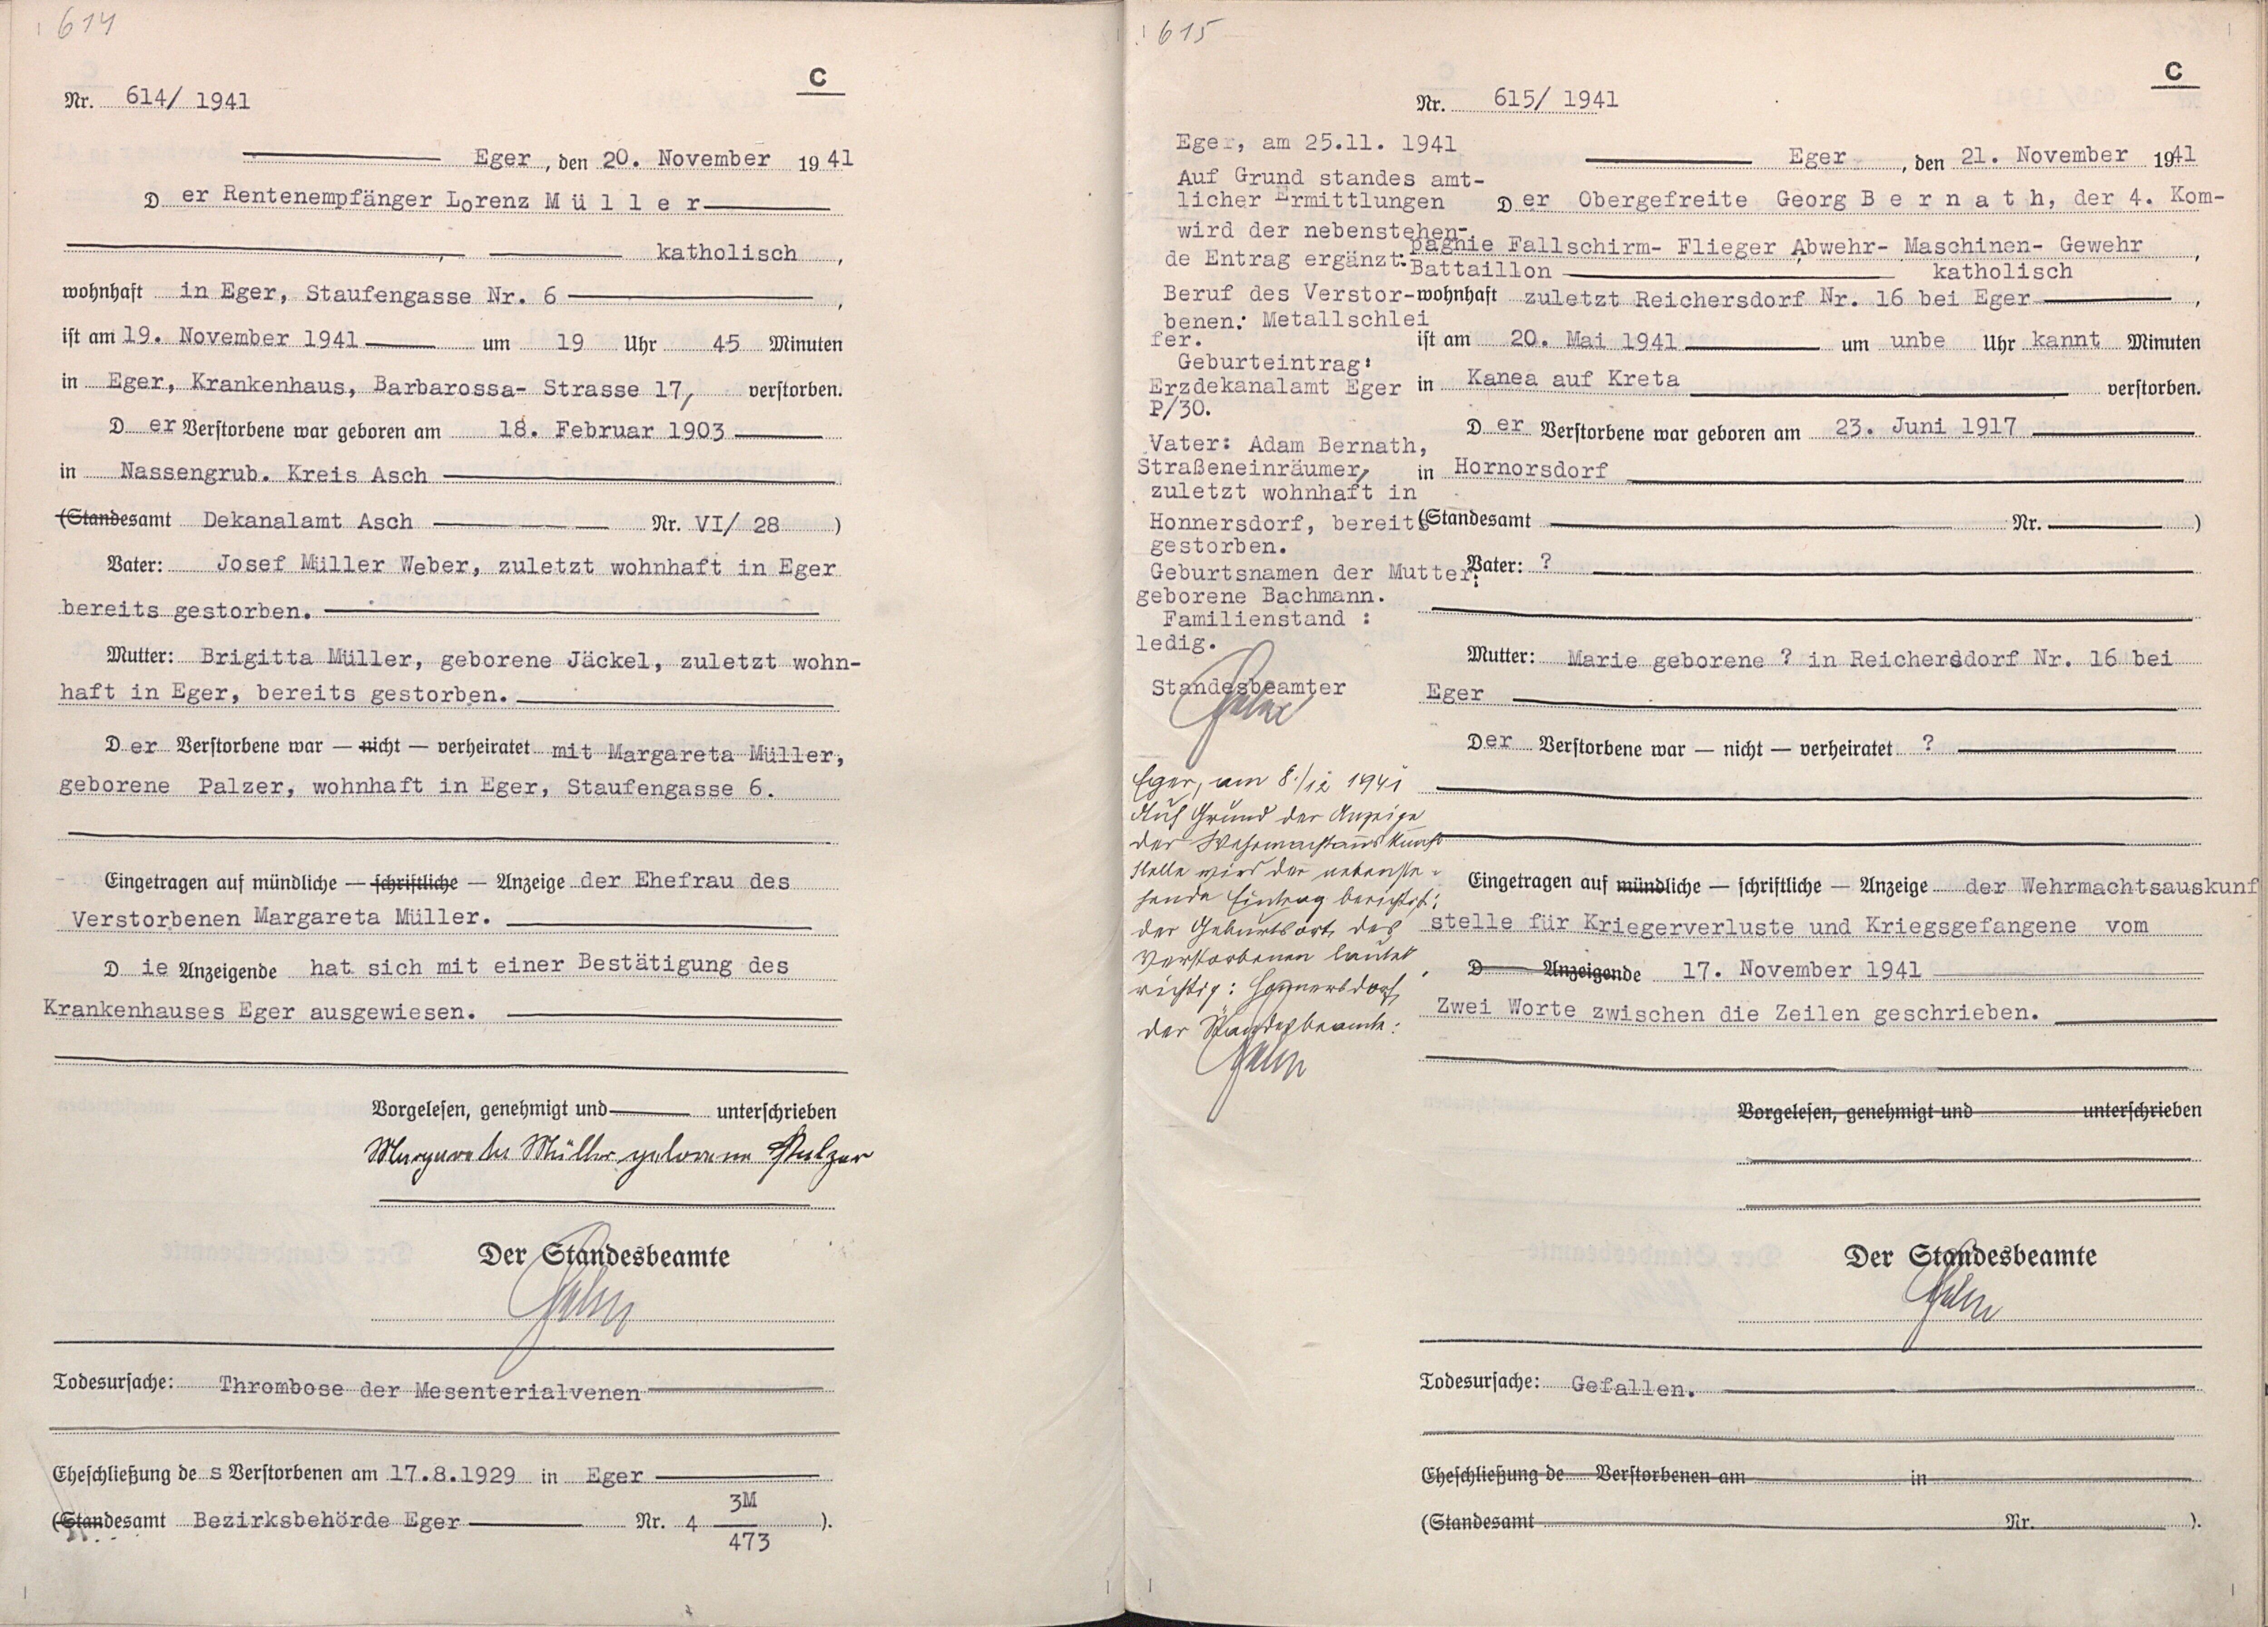 614
C
Nr. 614/ 1941
Eger, den 20. November 1941
Der Rentenempfänger Lorenz Müller
katholisch,
wohnhaft in Eger, Staufengasse Nr. 6,
ist am 19. November 1941 um 19 Uhr 45 Minuten
in Eger, Krankenhaus, Barbarossa- Strasse 17, verstorben.
Der Verstorbene war geboren am 18. Februar 1903
in Nassengrub. Kreis Asch
(Standesamt Dekanalamt Asch Nr. VI/ 28 )
Vater: Josef Müller Weber, zuletzt wohnhaft in Eger
bereits gestorben.
Mutter: Brigitta Müller, geborene Jäckel, zuletzt wohn-
haft in Eger, bereits gestorben.
Der Verstorbene war — nicht — verheiratet mit Margareta Müller,
geborene Palzer, wohnhaft in Eger, Staufengasse 6.
Eingetragen auf mündliche — schriftliche — Anzeige der Ehefrau des
Verstorbenen Margareta Müller.
Die Anzeigende hat sich mit einer Bestätigung des
Krankenhauses Eger ausgewiesen.
Vorgelesen, genehmigt und unterschrieben
Margarethe Müller geborene Palzer
Der Standesbeamte
Todesursache: Thrombose der Mesenterialvenen
Eheschließung des Verstorbenen am 17.8.1929 in Eger
(Standesamt Bezirksbehörde Eger Nr. 4 3M/473 ).
615
C
Nr. 615/ 1941
Eger, am 25.11. 1941
Auf Grund standes amt-
licher Ermittlungen
wird der nebenstehen-
de Entrag ergänzt:
Beruf des Verstor-
benen: Metallschlei
fer.
Geburteintrag:
Erzdekanalamt Eger
P/30.
Vater: Adam Bernath,
Straßeneinräumer,
zuletzt wohnhaft in
Honnersdorf, bereits
gestorben.
Geburtsnamen der Mutter:
geborene Bachmann.
Familienstand :
ledig.
Standesbeamter
Eger, am 8./12 1941
Auf Grund der Anzeige
der Wehrmachtauskunft
stelle wird der nebenste-
hende Eintrag berichtigt:
der Geburtsort des
Verstorbenen lautet
richtig: Honnersdorf,
der Standesbeamte:
Eger, den 21. November 1941
Der Obergefreite Georg Bernath, der 4. Kom-
pagnie Fallschirm- Flieger Abwehr- Maschinen- Gewehr,
Battaillon katholisch
wohnhaft zuletzt Reichersdorf Nr. 16 bei Eger,
ist am 20. Mai 1941 um unbe Uhr kannt Minuten
in Kanea auf Kreta verstorben.
Der Verstorbene war geboren am 23. Juni 1917
in Hornorsdorf
(Standesamt Nr. )
Vater: ?
Mutter: Marie geborene ? in Reichersdorf Nr. 16 bei
Eger
Der Verstorbene war — nicht — verheiratet ?
Eingetragen auf mündliche — schriftliche — Anzeige der Wehrmachtsauskunf
stelle für Kriegerverluste und Kriegsgefangene vom
D Anzeigende 17. November 1941
Zwei Worte zwischen die Zeilen geschrieben.
Vorgelesen, genehmigt und unterschrieben
Der Standesbeamte
Todesursache: Gefallen.
Eheschließung de Verstorbenen am in
(Standesamt Nr. ).